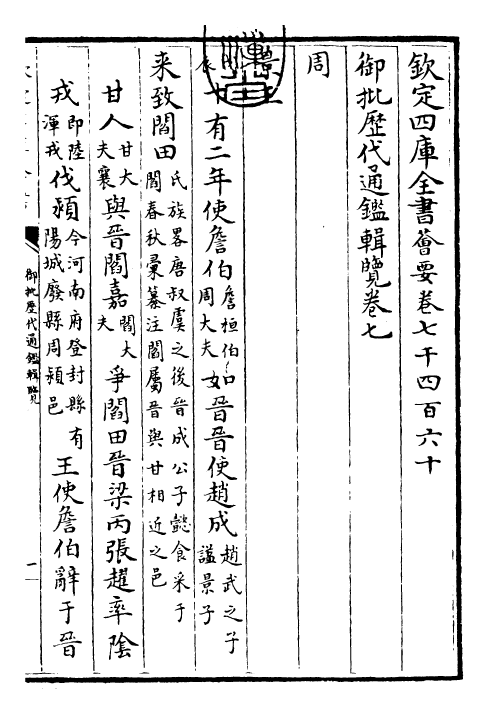 欽定四庫全書薈要卷七千四百六十
御批歷代通鑑輯覽卷七
周
王
十有二年使詹伯詹桓伯周大夫如晉晉使趙成趙武之子謚景子
來致閻田氏族畧唐叔虞之後晉成公子懿食采于閻春秋彙纂注閻屬晉與甘相近之邑
甘人甘大夫襄與晉閻嘉閻大夫爭閻田晉梁丙張趯率陰
戎即陸渾戎伐潁今河南府登封縣有陽城廢縣周潁邑王使詹伯辭于晉
御批歷代通鑑輯覽
一